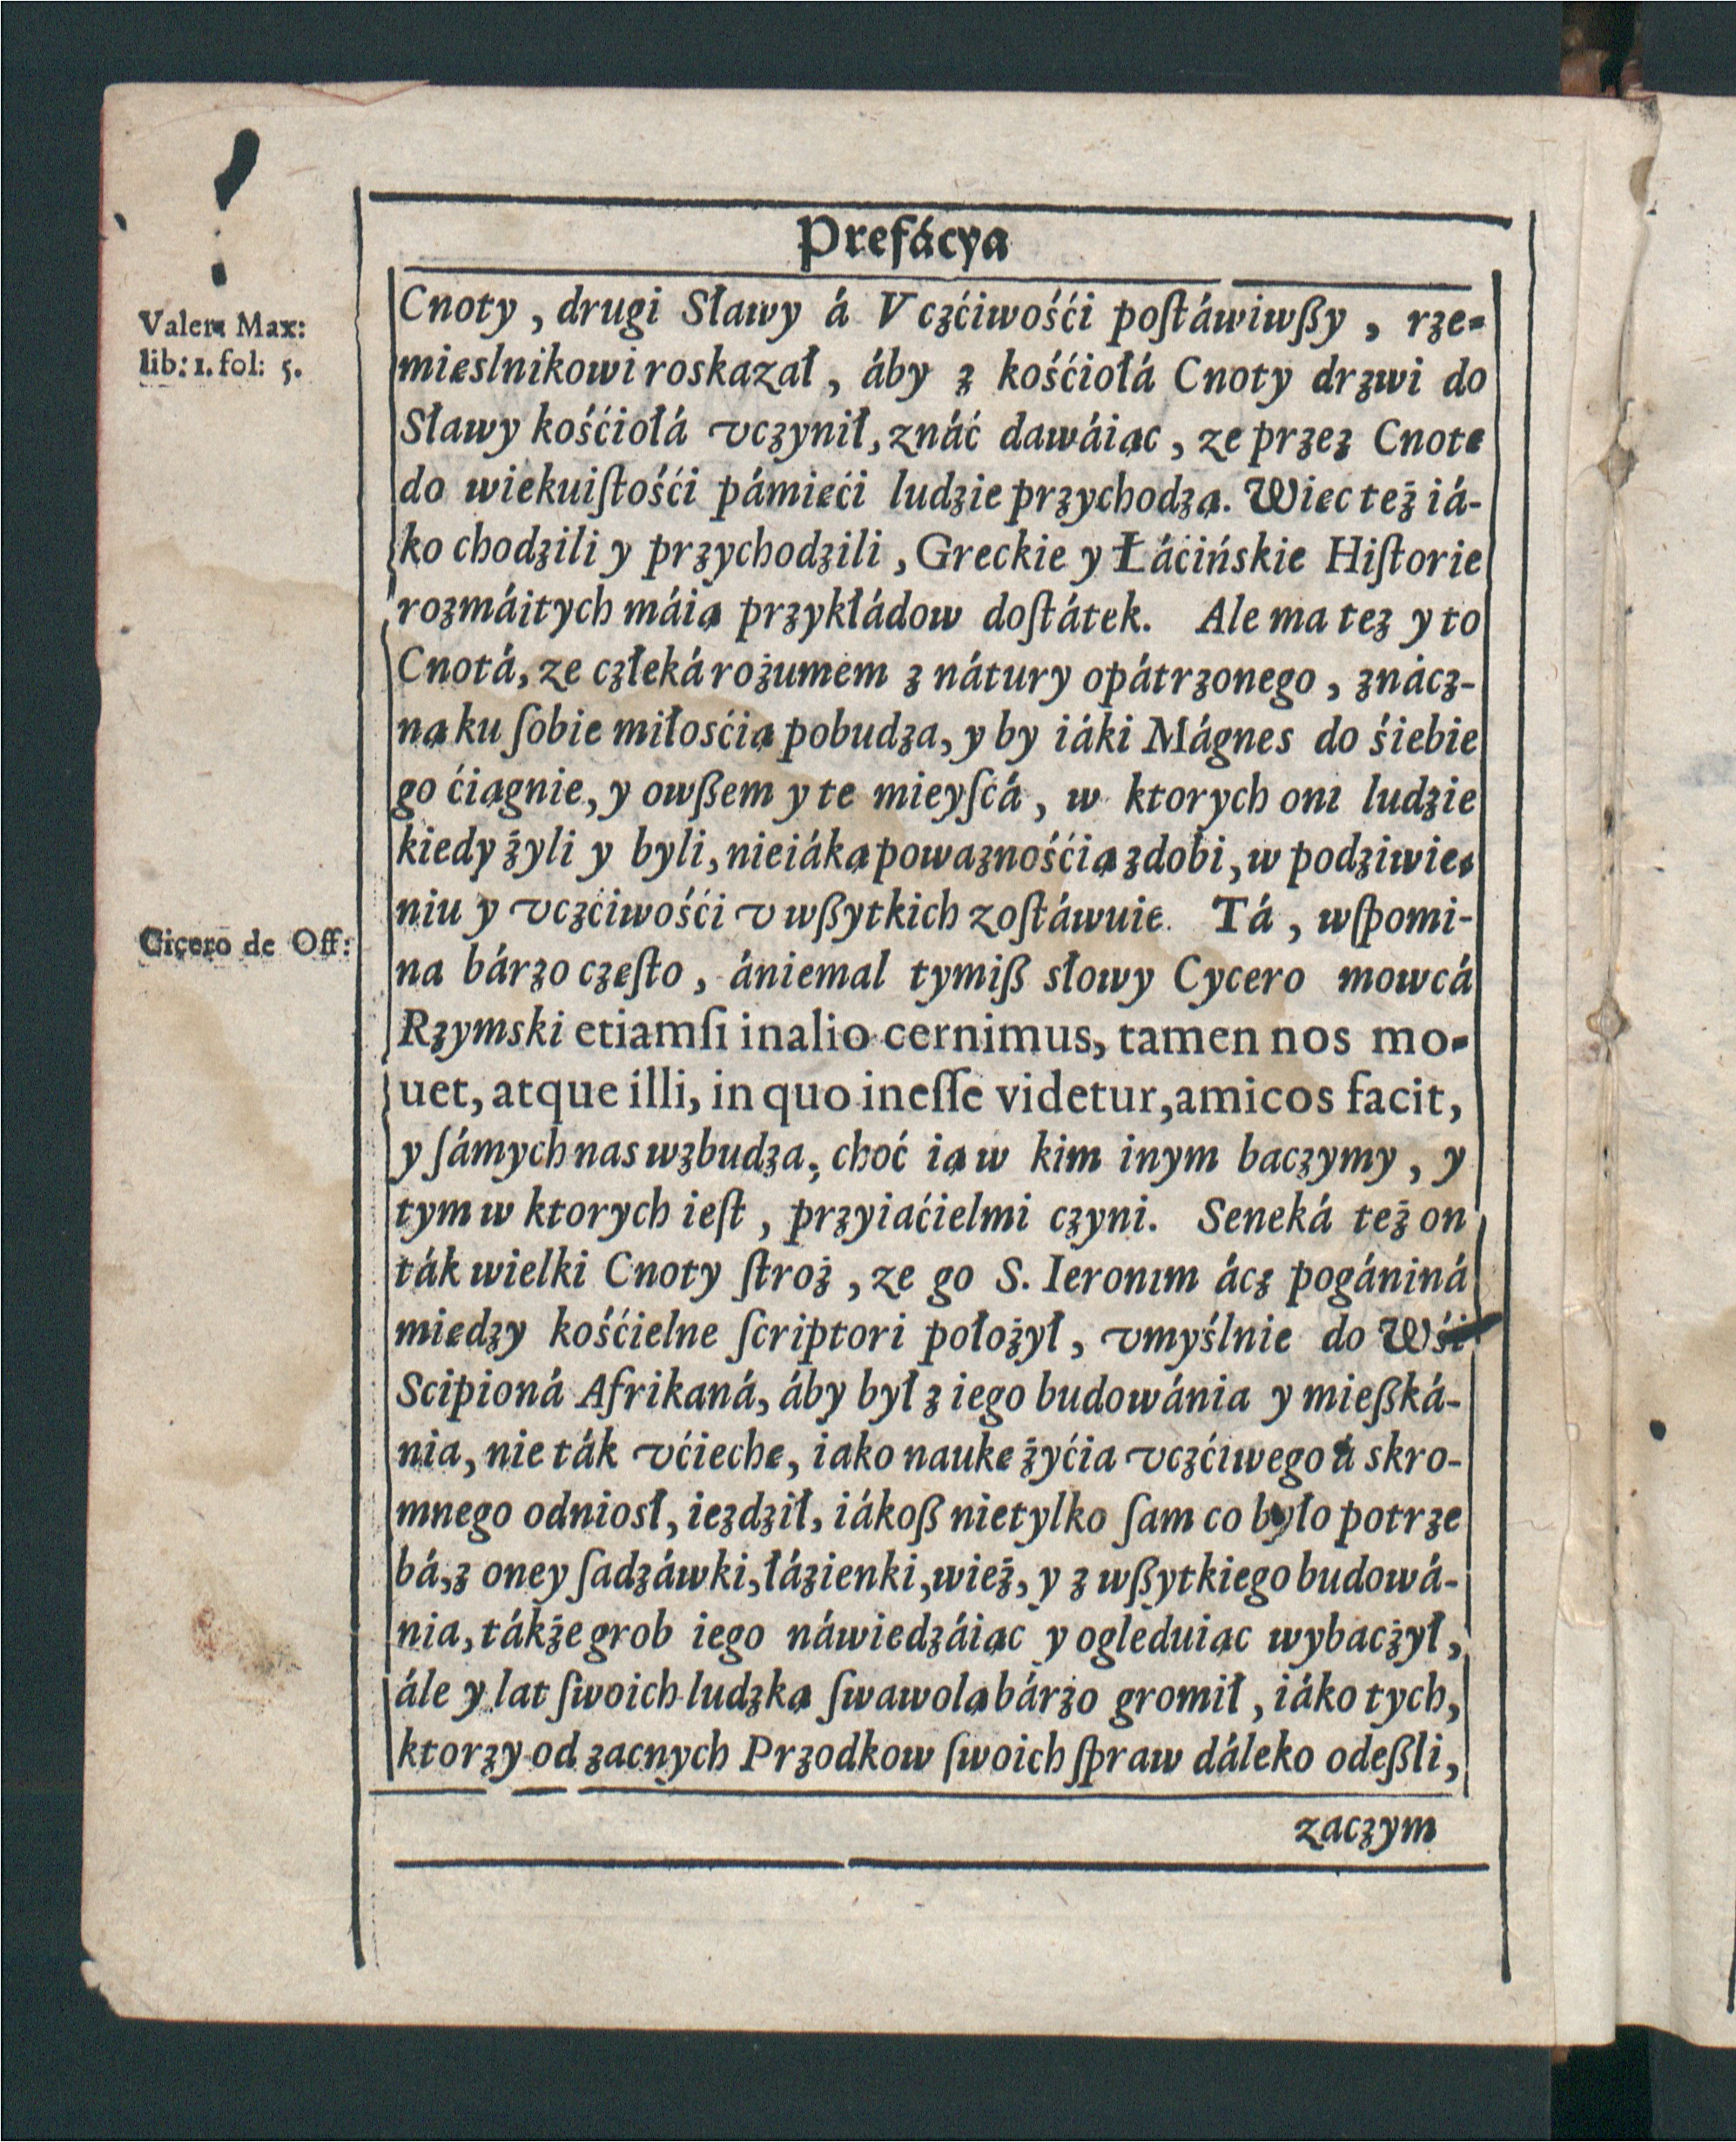 Prefácya
Valer: Max:
lib: 1. fol: 5.
Cnoty, drugi Sławy á Vczćiwośći poſtáwiwßy, rze-
mieslnikowi roskazał, áby z kośćiołá Cnoty drzwi do
Sławy kośćiołá vczynił, znáć dawáiąc, ze przez Cnote
do wiekuiſtośći pámięći ludzie przychodzą. Wiec też iá-
ko chodzili y przychodzili, Greckie y Łáćińskie Hiſtorie
rozmáitych máią przykłádow doſtátek. Ale ma tez y to
Cnotá, ze człeká rozumem z nátury opátrzonego, znácz-
ną ku ſobie miłosćią pobudza, y by iáki Mágnes do śiebie
go ćiągnie, y owßem y te mieyſcá, w ktorych oni ludzie
kiedy żyli y byli, nieiáką powaznośćią zdobi, w podziwie-
niu y vczćiwośći v wßytkich zoſtáwuie. Tá, wſpomi-
Cicero de Off:
na bárzo częſto, ániemal tymiß słowy Cycero mowcá
Rzymski etiamſi inalio cernimus, tamen nos mo-
uet, atque illi, in quo ineſſe videtur, amicos facit,
y ſámych nas wzbudza, choć ią w kim inym baczymy, y
tym w ktorych ieſt, przyiaćielmi czyni. Seneká też on
ták wielki Cnoty ſtroż, ze go S. Ieronim ácz pogániná
miedzy kośćielne ſcriptori położył, vmyślnie do Wśi
Scipioná Afrikaná, áby był z iego budowánia y mießká-
nia, nie ták vćieche, iako nauke żyćia vczćiwego á skro-
mnego odniosł, iezdził, iákoß nietylko ſam co było potrze
bá, z oney ſadzáwki, łáźienki, wież, y z wßytkiego budowá-
nia, tákże grob iego náwiedzáiąc y ogleduiąc wybaczył,
ále y lat ſwoich ludzką ſwawolą bárzo gromił, iáko tych,
ktorzy od zacnych Przodkow ſwoich ſpraw dáleko odeßli,
zaczym